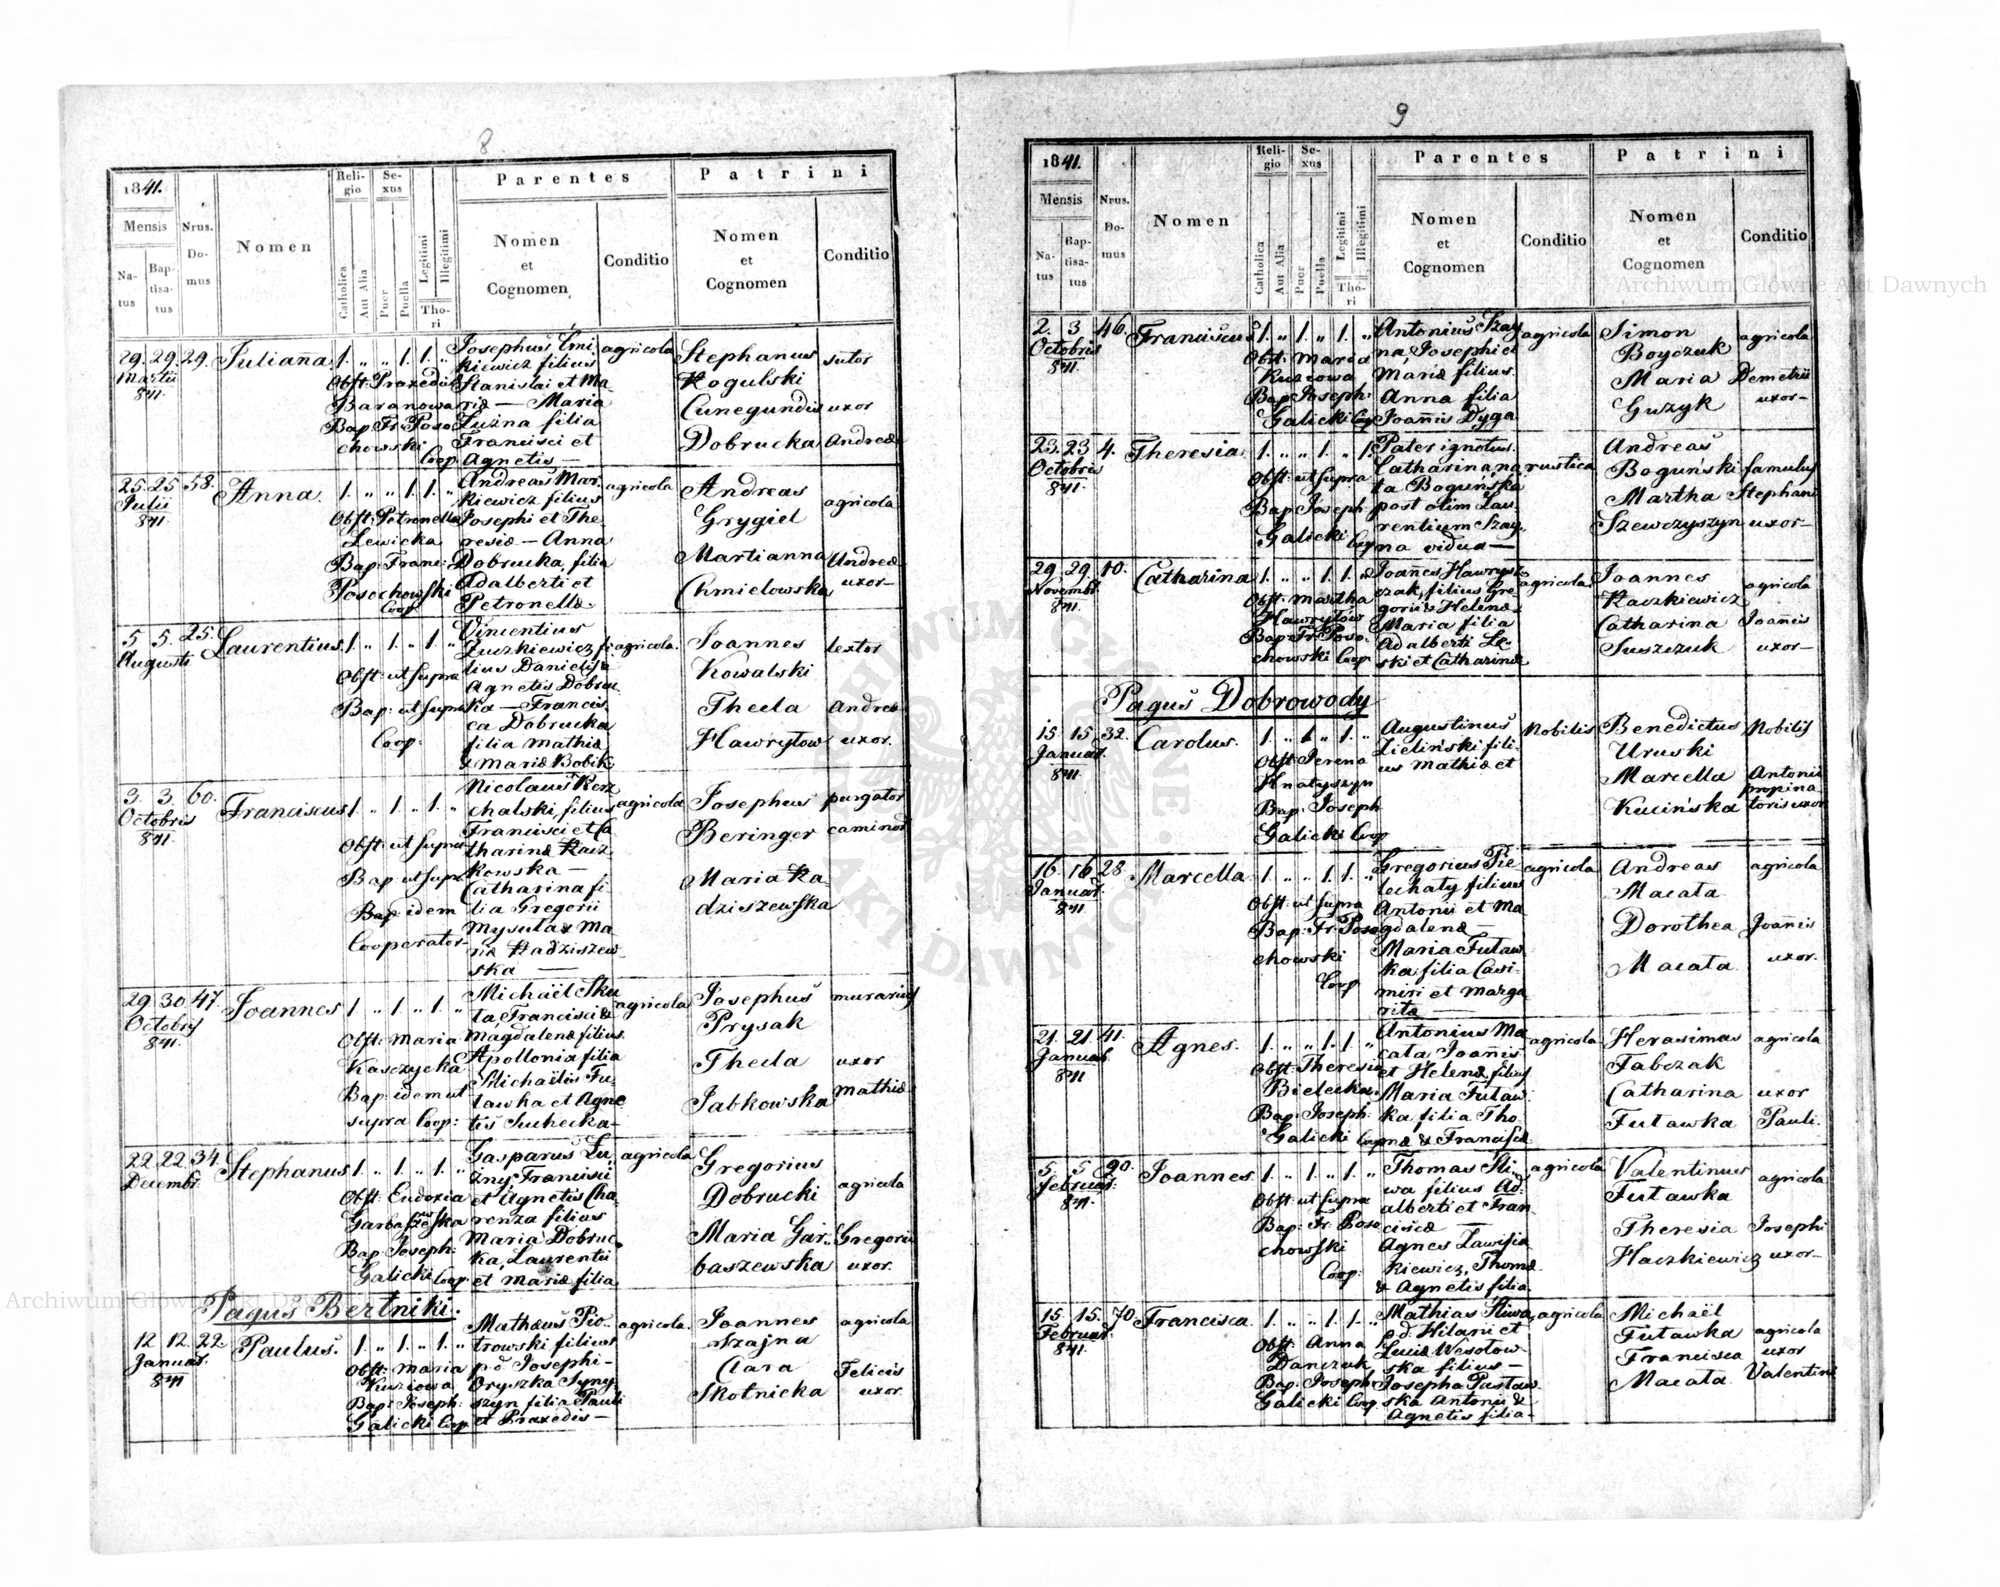 8
1841.
Mensis
Na-
tus
Bap-
tisa-
tus
Nrus.
Do-
mus
Nomen
Reli-
gio
Catholica
Aut Alia
Se-
xus
Puer
Puella
Legitimi
Illegitimi
Tho-
ri
Parentes
Nomen
et
Cognomen
Conditio
Patrini
Nomen
et
Cognomen
Conditio
29. 29. 29. Juliana. 1. „ „ 1. 1. „
Martii
841.
Obst: Praxedis
Baranowa
Bap: Fr: Poso
chowski
Coop.
Josephus Smi
kiewicz filius
Stanislai et Ma
riæ — Maria
Luzna filia
Francisci et
Agnetis —
agricola
Stephanus
Rogulski
Cunegundis
Dobrucka
sutor
uxor
Andreæ
25. 25. 58. Anna. 1. „ „ 1. 1. „
Julii
841.
Obst: Petronella
Lewicka
Bap: Franc:
Posochowski
Coop
Andreas Mar
kiewicz filius
Josephi et The
resiæ — Anna
Dobrucka, filia
Adalberti et
Petronellæ.
agricola
Andreas
Grygiel
Martianna
Chmielowska
agricola
Andreæ
uxor—
5. 5. 25. Laurentius. 1. „ 1. „ 1. „
Augusti
841.
Obst: ut supra
Bap: ut supra
Coop:
Vincentius
Luczkiewicz fi
lius Danielis &
Agnetis Dobru
ka — Francis
ca Dobrucka
filia Mathiæ
& Mariæ Bobik
agricola.
Joannes
Kowalski
Thecla
Hawrylow
textor
Andreæ
uxor.
3. 3. 60. Franciscus 1. „ 1. „ 1. „
Octobris
841.
Obst: ut supra
Bap: ut supra
Bap: idem
Cooperator—
Nicolaus Kerz
chalski, filius
Francisci et Ca
tharinæ Racz
kowska —
Catharina fi
lia Gregorii
Mysula & Ma
riæ Radziszew
ska —
agricola
Josephus
Beringer
Maria Ra
dziszewska
purgator
caminor
29. 30. 47. Joannes 1. „ 1. „ 1. „
Octobris
841.
Obst: Maria
Kasczycka
Bap: idem ut
supra Coop:
Michaël Sku
ta, Francisci &
Magdalenæ filius.
Apollonia filia
Michaëlis Fu
tawka et Agne
tis Suchecka—
agricola
Josephus
Prysak
Thecla
Jabkowska
murarius
uxor
Mathiæ
22. 22. 34. Stephanus 1. „ 1. „ 1. „
Decembr.
Obst: Eudoxia
Bap: Joseph:
Galicki Coop:
Gasparus Lu
zny, Francisci
et Agnetis Cha
renza filius
Maria Dobruc
ka, Laurentii
et Mariæ filia
agricola.
Gregorius
Dobrucki
Maria Gar„
baszewska
agricola
Gregorii
uxor.
Pagus Bertniki.
12. 12. 22. Paulus. 1. „ 1. „ 1. „
Januar.
841
Obst: Maria
Kuziowa
Bap: Joseph:
Galicki Coop
Mathæus Pio
trowski filius
p.d. Josephi—
Oryszka Syny
szyn filia Pauli
et Praxedis—
agricola.
Joannes
Szajna
Clara
Skotnicka
agricola
Felicis
uxor.
9
1841.
Mensis
Na-
tus
Bap-
tisa-
tus
Nrus.
Do-
mus
Nomen
Reli-
gio
Catholica
Aut Alia
Se-
xus
Puer
Puella
Legitimi
Illegitimi
Tho-
ri
Parentes
Nomen
et
Cognomen
Conditio
Patrini
Nomen
et
Cognomen
Conditio
2. 3 46. Franciscus 1. „ 1. „ 1. „
Octobris
841.
Obst: Maria
Kuziowa
Bap: Joseph:
Galicki Coop
Antonius Szay
na, Josephi et
Mariæ filius.
Anna filia
Joannis Dyga
agricola
Simon
Boyczuk
Maria
Guzyk
agricola
Demetrii
uxor—
23. 23 4. Theresia. 1. „ „ 1. „ 1.
Octobris
841.
Obst: ut supra
Bap: Joseph
Galicki Coop
Pater ignotus.
Catharina na
ta Bogunska
post olim Lau
rentium Szay
na vidua —
rustica
Andreas
Bogunski
Martha
Szewczyszyn
famulus
Stephani
uxor—
29. 29. 10. Catharina 1. „ „ 1. 1. „
Novembr.
841.
Obst: Martha
Hawrylów
Bap: Fr: Poso
chowski Coop
Joannes Hawrysz
czak, filius Gre
gorii & Helenæ
Maria filia
Adalberti Le
ski et Catharinæ
agricola.
Joannes
Raczkiewicz
Catharina
Suszczuk
agricola
Joannis
uxor—
Pagus Dobrowody
15. 15. 32. Carolus. 1. „ 1. „ 1. „
Januar.
841.
Obst: Jerena
Hnatyszyn
Bap: Joseph
Galicki Coop
Augustinus
Zieliński fili
us Mathiæ et
Nobilis
Benedictus
Uruski
Marcella
Kucińska
Nobilis
Antonii
propina
toris uxor
16. 16. 28. Marcella. 1. „ „ 1. 1. „
Januar.
841
Obst: ut supra
Bap: Fr: Poso
chowski
Coop
Gregorius Pie
lechaty filius
Antonii et Ma
gdalenæ —
Maria Futaw
ka, filia Casi
miri et Marga
rita
agricola
Andreas
Macata
Dorothea
Macata
agricola
Joannis
uxor.
21. 21. 41. Agnes. 1. „ „ 1. 1. „
Januar
841
Obst: Theresia
Bielecka
Bap: Joseph:
Galicki Coop
Antonius Ma
cata, Joannis
et Helenæ filius
Maria Futaw
ka filia Tho
mæ & Franciscæ
agricola
Herasimas
Fabczak
Catharina
Futawka
agricola
uxor
Pauli.
5. 5 90. Joannes 1. „ 1. „ 1. „
Februar.
841.
Obst: ut supra
Bap: Fr. Poso
chowski
Coop:
Thomas Sli„
wa filius Ad
alberti et Fran
ciscæ —
Agnes Zawisia
kiewicz, Thomæ
& Agnetis filia.
agricola
Valentinus
Futawka
Theresia
Haczkiewicz
agricola
Josephi
uxor—
15 15. 70. Francisca. 1. „ „ 1. 1. „
Februar.
841.
Obst: Anna
Danczuk,
Bap: Joseph
Galicki Coop
Mathias Sliwa,
p.d. Hilarii et
Luciæ Wesolow
ska filius—
Josepha Pustaw
ska Antonii &
Agnetis filia—
agricola.
Michaël
Futawka
Francisca
Macata
agricola
uxor
Valentini
Archiwum Główne Akt Dawnych
Archiwum Główne Akt Dawnych
ARCHIWUM GŁÓWNE · AKT DAWNYCH ·